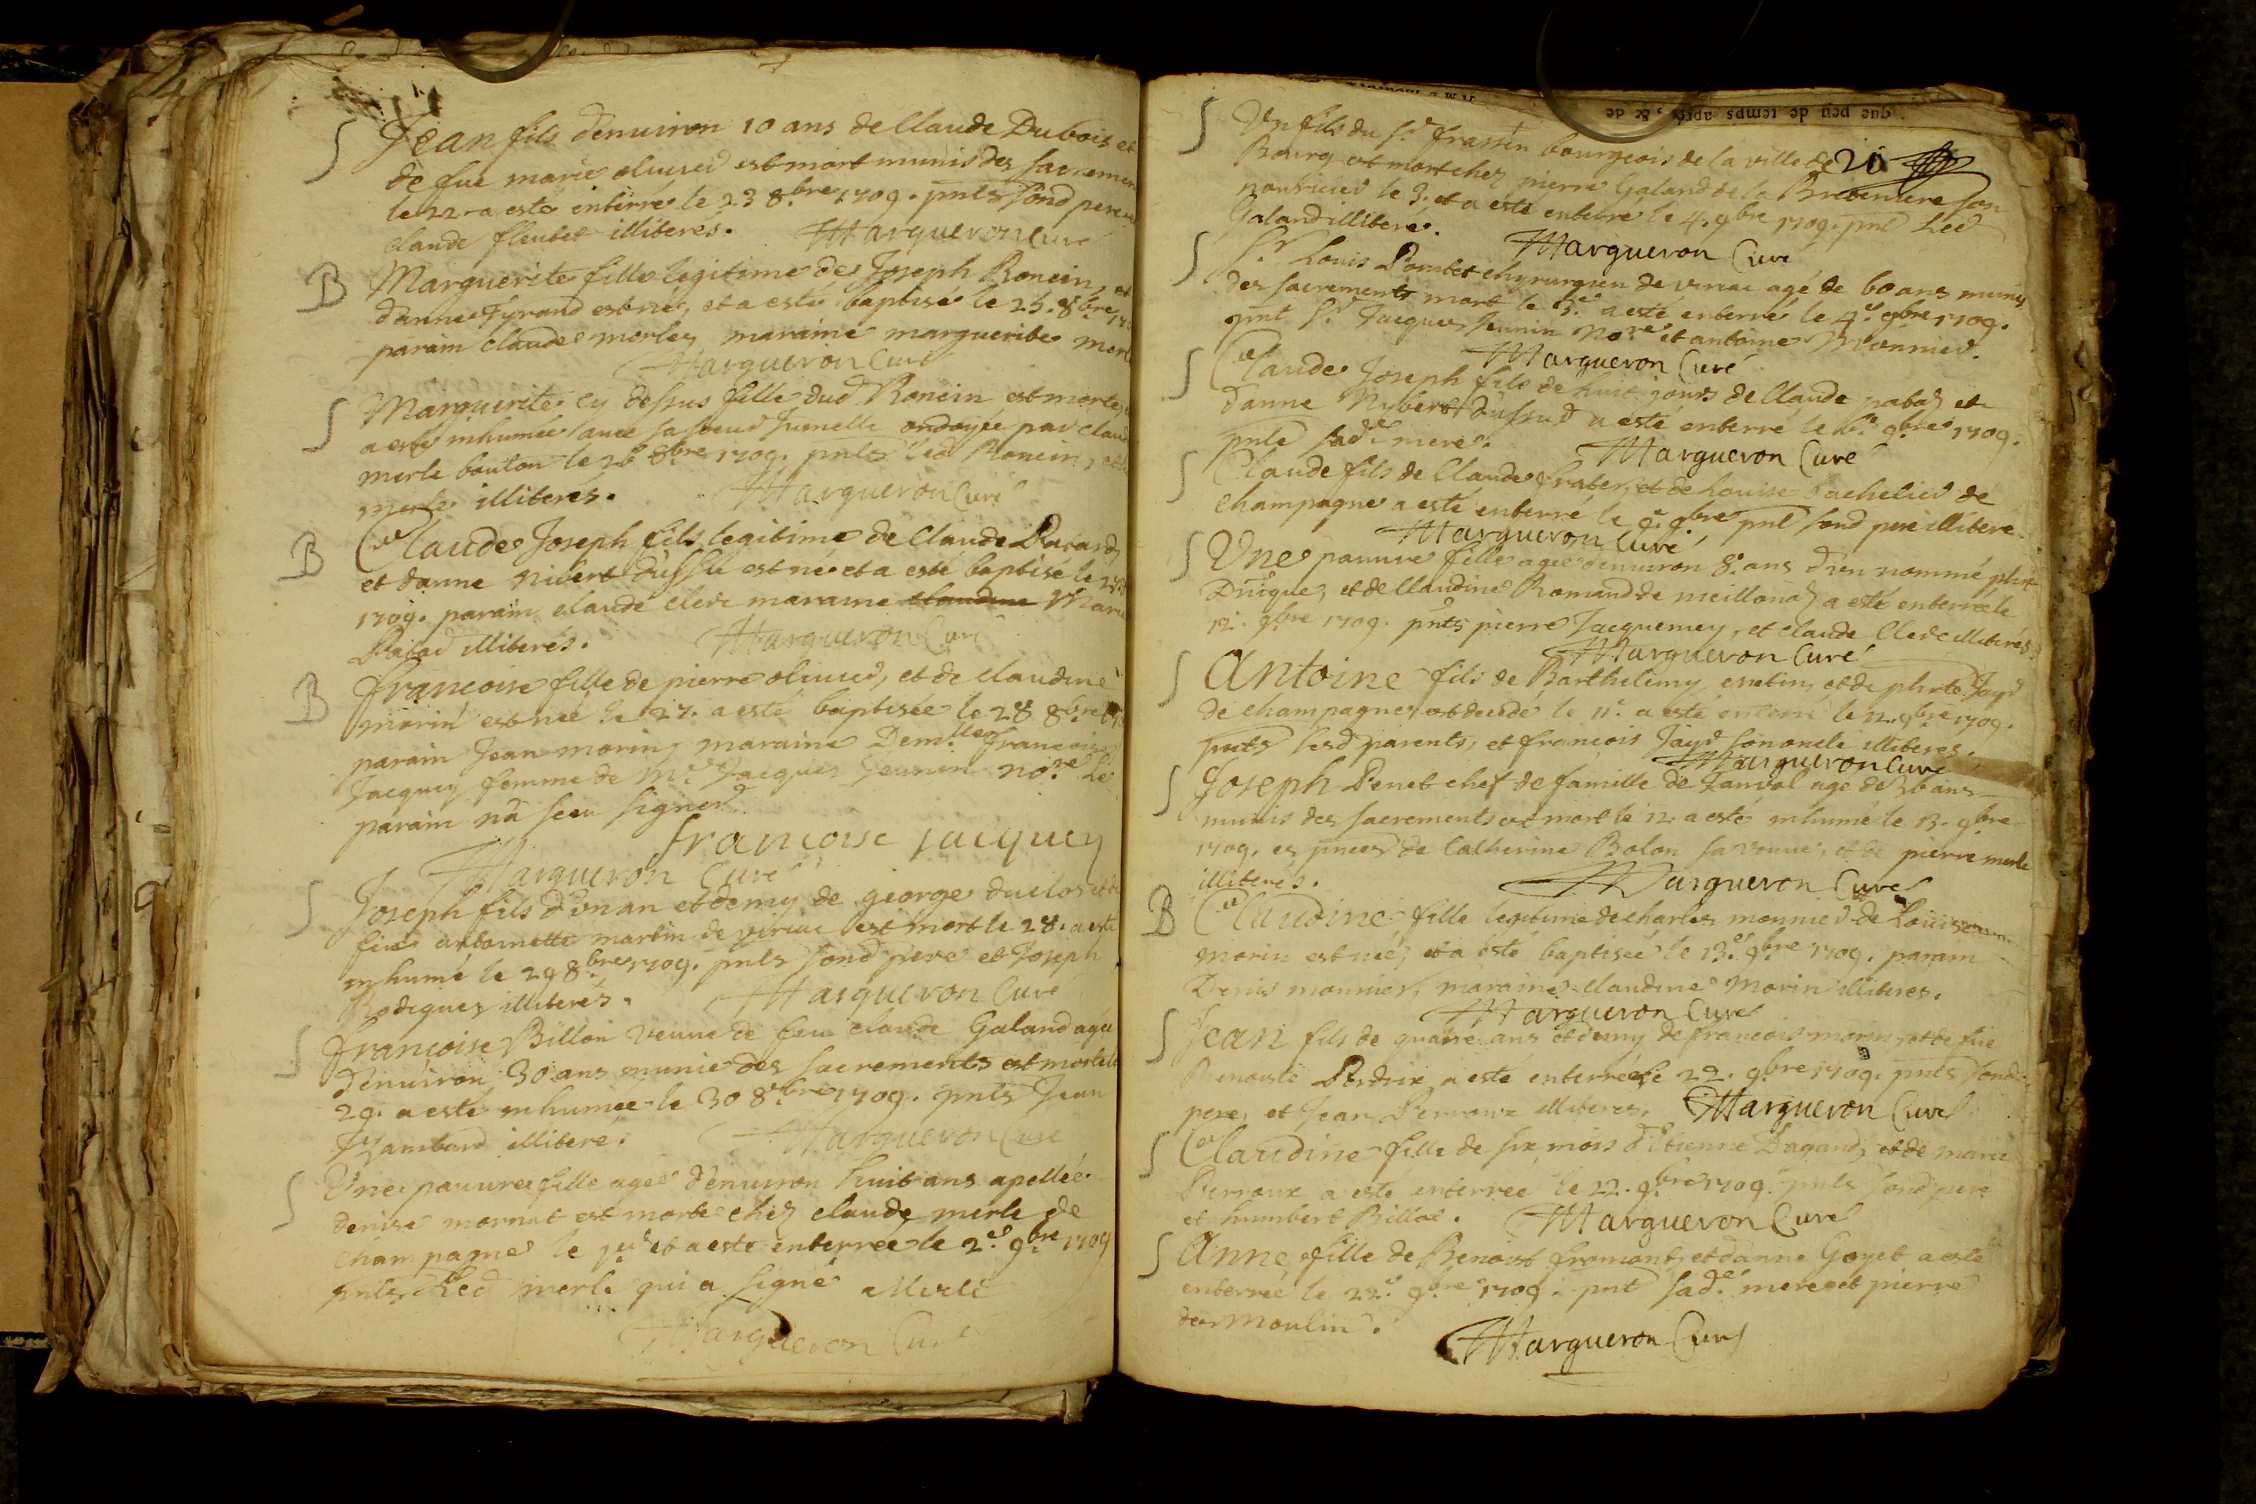 S Jean fils d'enuiron 10 ans de Claude Dubois et
de fue marie oliuier est mort munis des sacremen
le 22. a esté enterré le 23 8.bre 1709. pnts sond pere et
claude fleutet illiterés. Margueron Curé
B Marguerite fille legitime de Joseph Roncin, et
d'anne Tyrand est née, et a esté baptisé le 25. 8bre
parain claude merle, maraine marguerite merle
Margueron Curé
S Marguerite cy dessus fille dud Roncin est morte,
a esté inhumée auec sa soeur Jumelle ondoyée par claud
merle bouton le 26 8bre 1709. pnts led Roncin, et
merle illiterés. Margueron Curé
B Claude Joseph fils legitime de Claude
et danne nibert est né et a esté baptisé le
1709. parain claude clerc maraine claudine Marie
illiterés. Margueron Curé
B francoise fille de pierre oliuier, et de claudine
morin est née le 27. a esté baptisée le 28 8bre
parain Jean morin, maraine Dem.lle francoise
Jacquey femme de M.e Jacques Jeunin no.re Le
parain n'a sceu signer.
francoise jacquey
Margueron Curé
S Joseph fils d'un an et demy de george duclos et
fue antoinette martin de viriac est mort le 28. a esté
inhumé le 29 8.bre 1709. pnts sond pere et Joseph
Rodiques illiterés. Margueron Curé
S francoise Billon veuue de feu claude Galand agée
d'enuiron 30 ans munie des sacrements est morte le
29. a esté inhumée le 30 8.bre 1709. pnts Jean
illiteré. Margueron Curé
S Une pauure fille agée d'enuiron huit ans apellée
denise mornat est morte chez claude merle de
Champagne le 1er et a esté enterrée le 2e. 9bre 1709
pnts Led merle qui a signé Merle
Margueron Curé
que peu de temps après, & de
S Un fils du S.r frassin bourgeois de la ville de 21
Bourg est mort chez pierre Galand de la son
nouricier le 3. et a esté enterré le 4. 9bre 1709. pnt Led
Galand illiteré. Margueron Curé
S S.r Louis Pombet chyrurgien de viriac agé de 60 ans munis
des sacrements mort le 3.e a esté enterré le 4.e 9bre 1709.
pnt S.r Jacques Jeunin No.re et antoine Monnier.
Margueron Curé
S Claude Joseph fils de huit jours de Claude et
danne Nybert a esté enterré le 6.e 9bre 1709.
pnte sad.e mere. Margueron Curé
S Claude fils de Claude frater, et de Louise Bachelier de
Champagne a esté enterré le 9bre pnt sond pere illiteré.
Margueron Curé
S Une pauure fille agée d'enuiron 8. ans d'un nommé
et de Claudine Romand de meillona a esté enterrée le
12. 9bre 1709. pnts pierre Jacquemey, et claude Clerc illiterés.
Margueron Curé
S Antoine fils de Barthelemy et de Jayr
de champagne est decedé le 11.e a esté enterré le 12. 9bre 1709.
pnts lesd parents, et francois Jayr son oncle illiterés.
Margueron Curé
S Joseph Penet chef de famille de agé de ans
munis des sacrements est mort le 12. a esté inhumé le 13. 9bre
1709. es pnces de Catherine Bolon sa veuue, et de pierre merle
illiterés. Margueron Curé
B Claudine fille legitime de charles monnier de Louise
morin est née, et a esté baptisée le 13.e 9bre 1709. parain
Denis monnier, maraine claudine Morin illiteres.
Margueron Curé
S Jean fils de quatre ans et demy de francois morin, et de fue
Benoiste Perdrix, a esté enterré le 22. 9bre 1709. pnts sond
pere, et Jean Perroux illiteres. Margueron Curé
S Claudine fille de six mois d'Etienne Pagand, et de marie
Perroux a esté enterrée le 22. 9bre 1709. pnts sond pere
et humbert Billot. Margueron Curé
S Anne fille de Benoist fromont, et danne Goyet a esté
enterrée le 22.e 9bre 1709. pnt sad.e mere et pierre
desmoulin. Margueron Curé